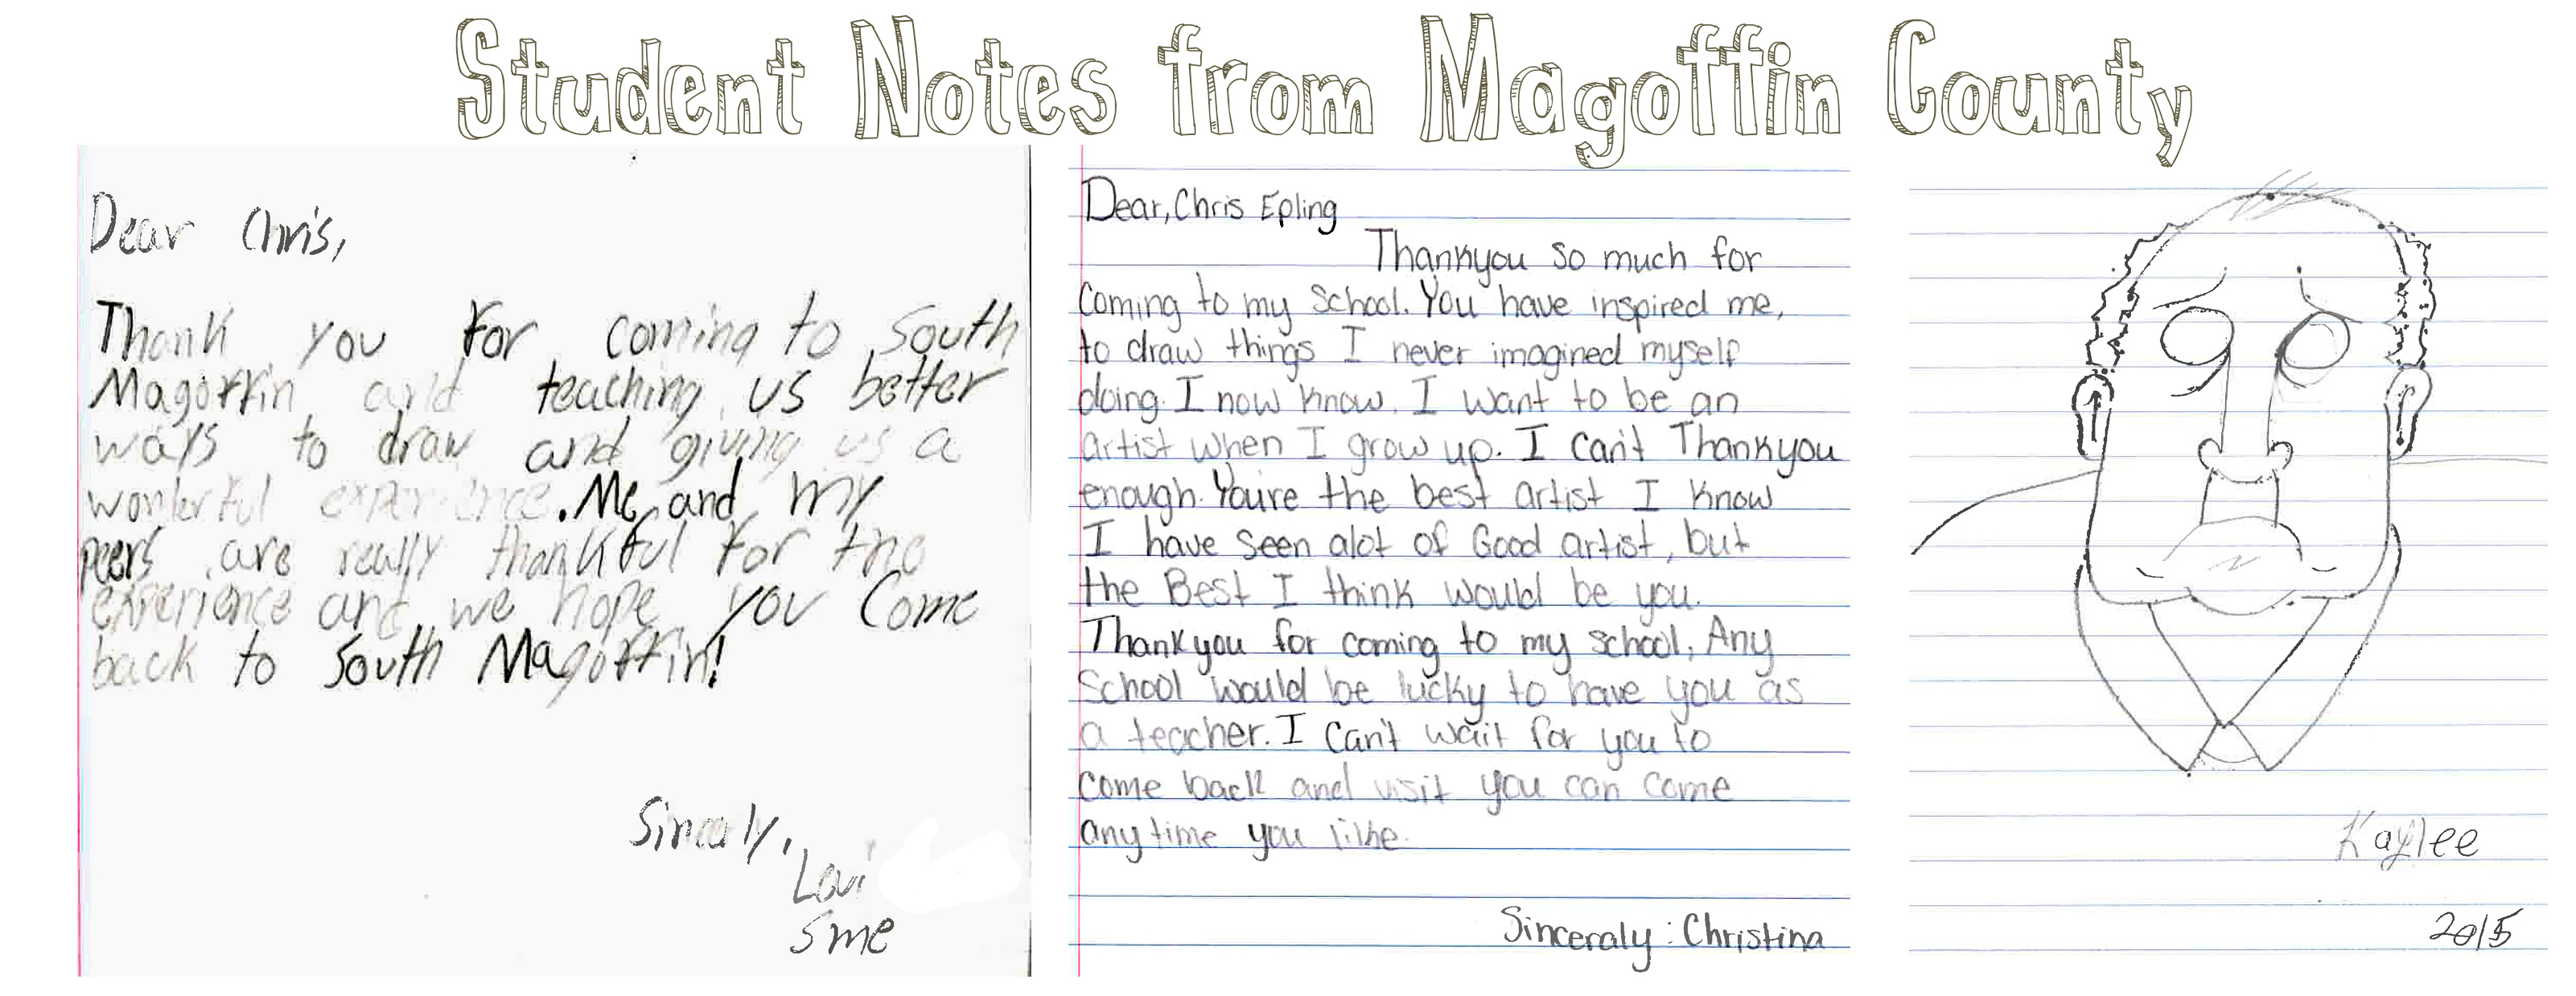 Student Notes from Magoffin County
Dear Chris,
Thank you for coming to South
Magoffin and teaching us better
ways to draw and giving us a
wonderful experience. Me and my
peers are really thankful for the
experience and we hope you Come
back to South Magoffin!
Sincerly,
Levi
SME
Dear, Chris Epling
Thankyou so much for
Coming to my School. You have inspired me,
to draw things I never imagined myself
doing. I now know. I want to be an
artist when I grow up. I can't Thankyou
enough. You're the best artist I know
I have seen alot of Good artist, but
the Best I think would be you.
Thankyou for coming to my school, Any
School would be lucky to have you as
a teacher. I Can't wait for you to
come back and visit you can come
anytime you like.
Sinceraly: Christina
Kaylee
2015